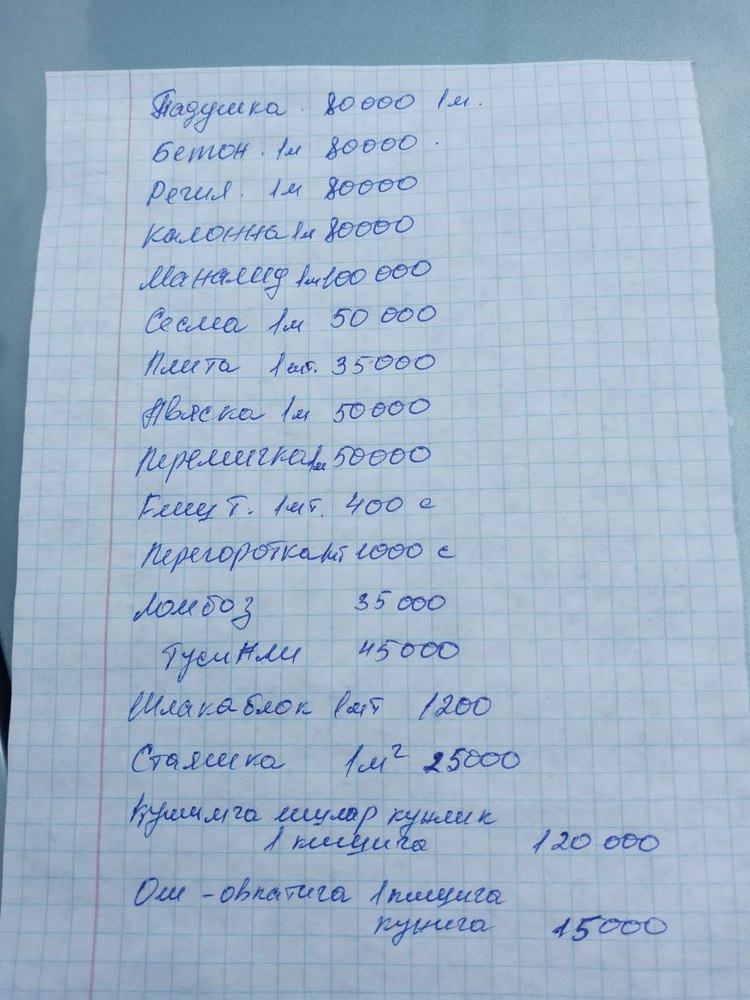 Падушка. 80000 1м.
Бетон. 1м 80000.
Регил. 1м 80000
Калонна 1м 80000
Маналид 1м 100 000
Сесма 1м 50 000
Плита 1шт. 35000
Авяска 1м 50000
Перемичка 1м 50000
Ғишт. 1шт. 400 с
Перегоротка 1шт 1000 с
Ломбоз 35 000
Тусинли 45000
Шлакаблок 1шт 1200
Стяшка 1м² 25000
Қушимга ишлар кунлик
1 кишига 120 000
Ош-овкатига 1 кишига
кунига 15000